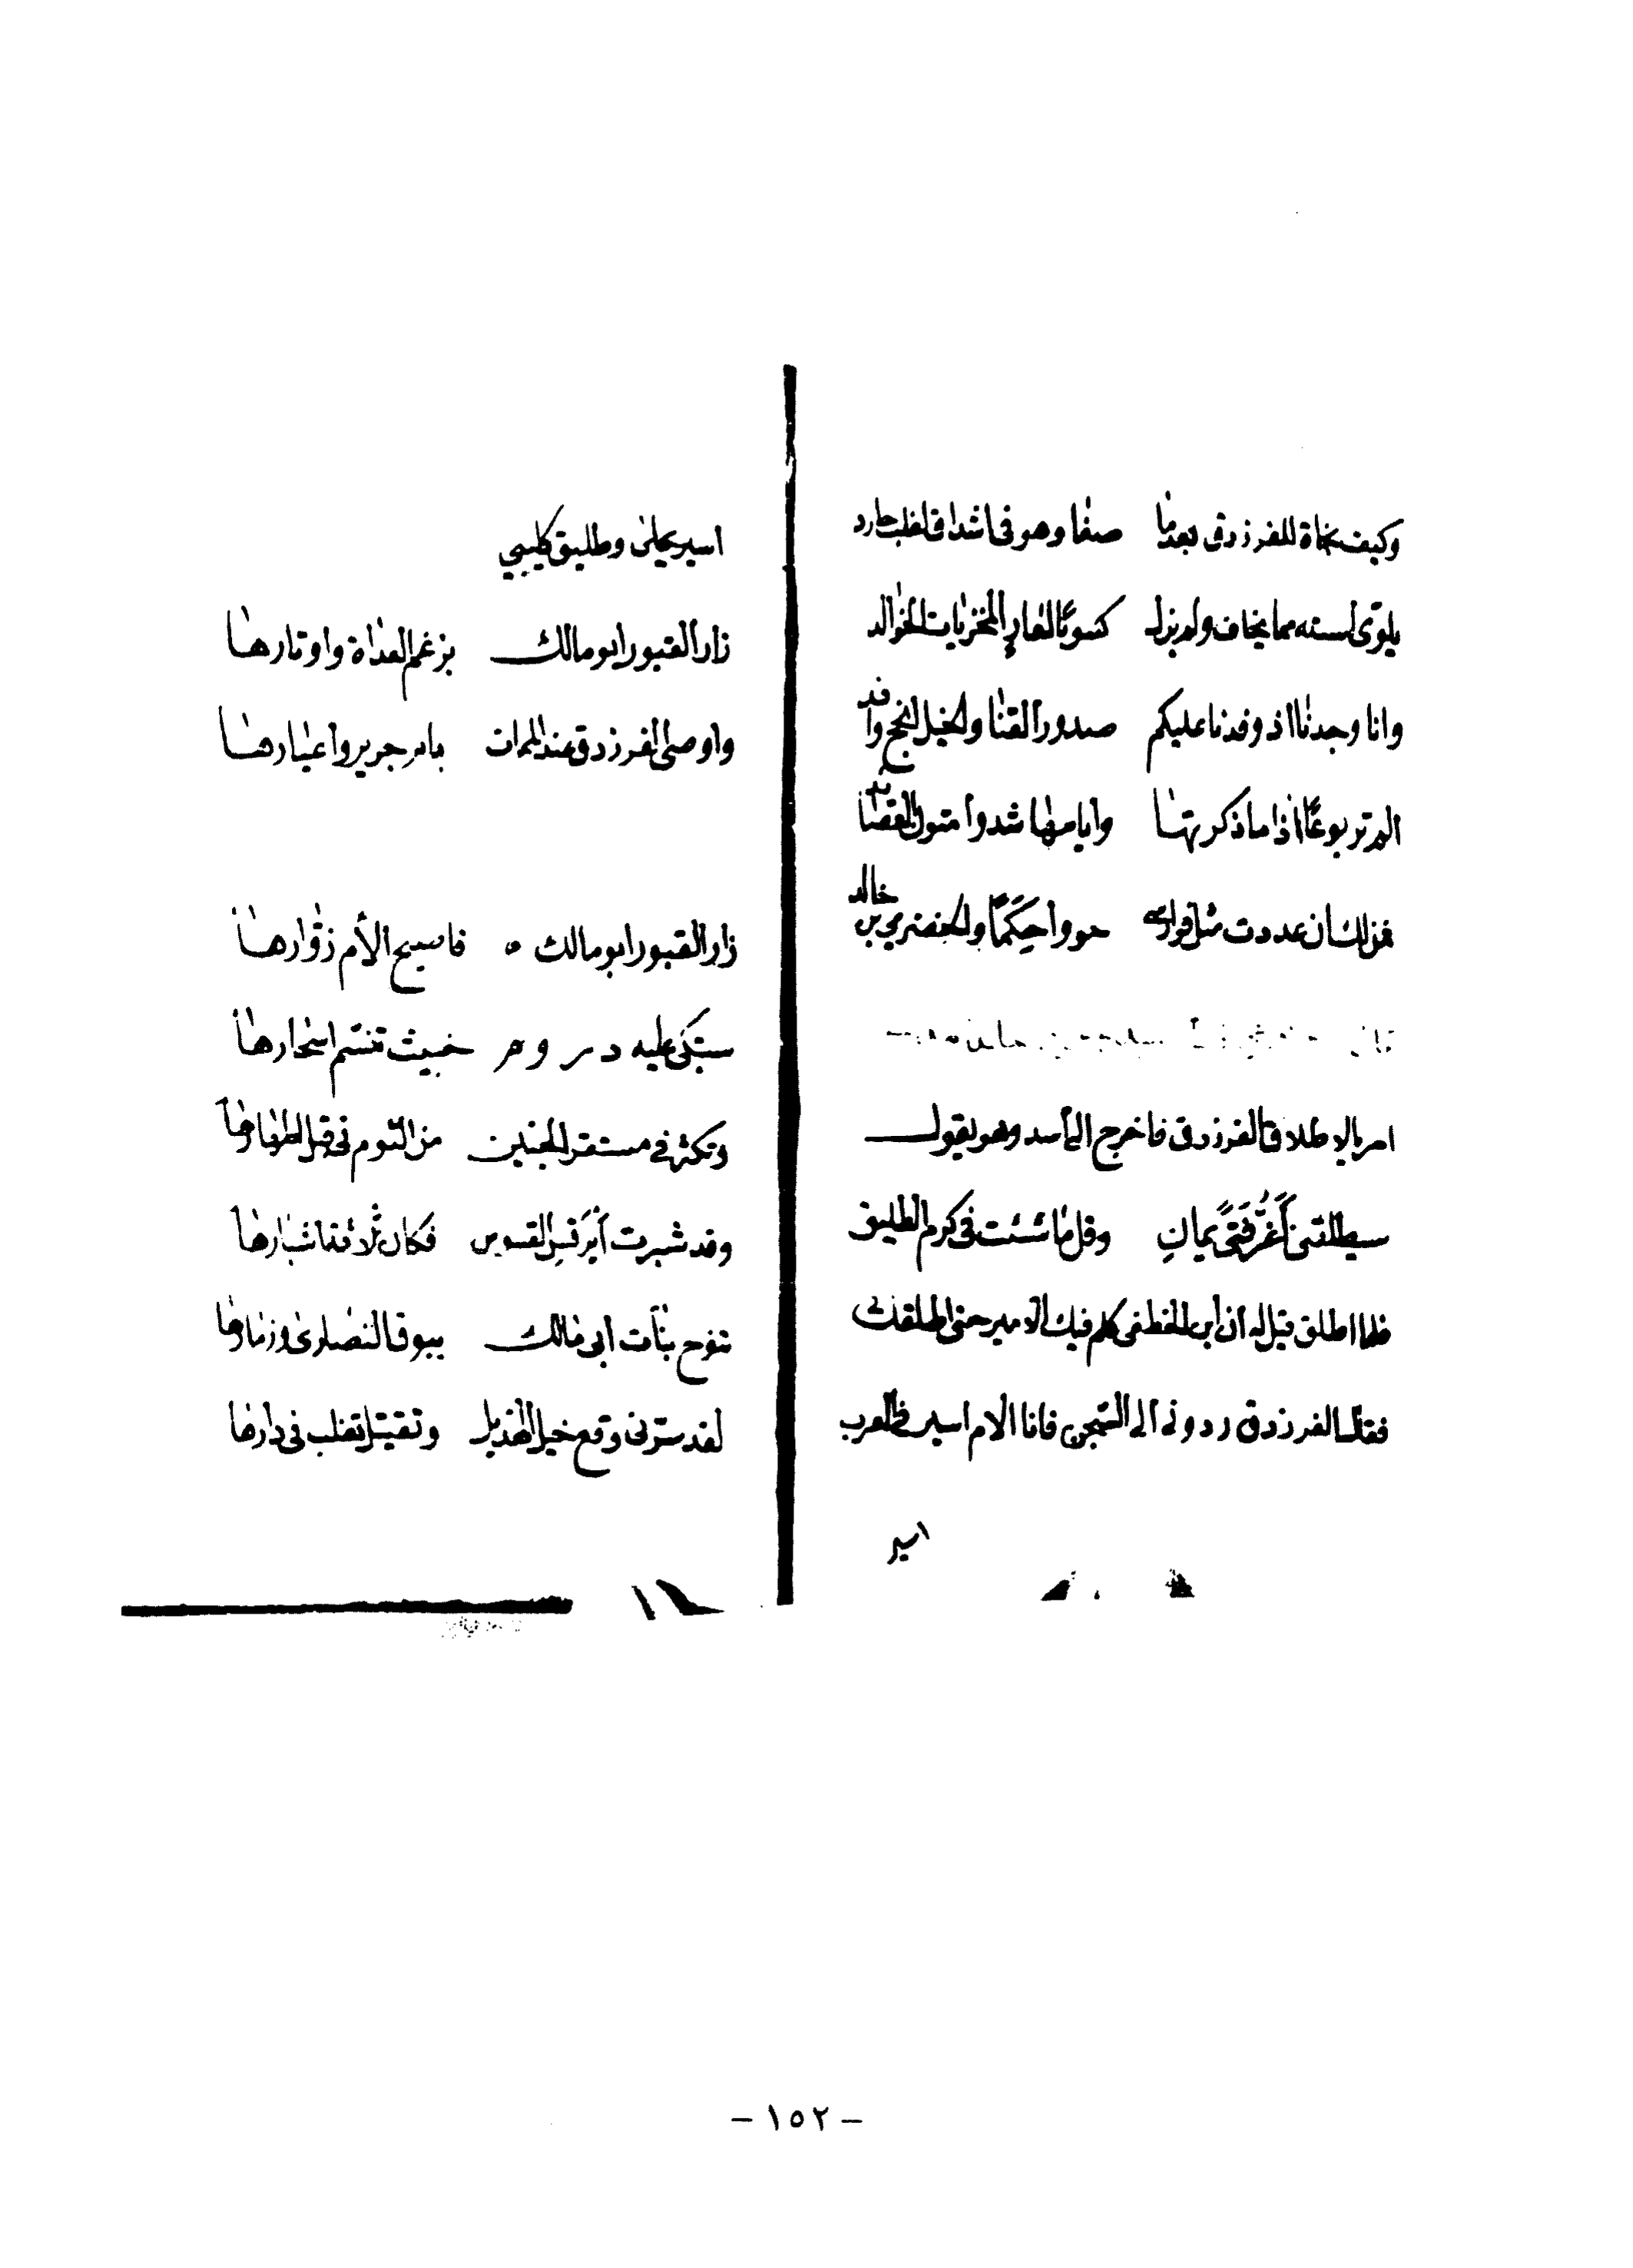 وكيف نجاة للفرزدق بعدما صفا وهو فى اشداق اغلب حارد
يلوى استه مما يخاف ولم يزل كسوبًا لعار المخزيات الخوالد
وانا وجدنا اذ وفدنا عليكم صدور القنا والخيل انجح وافد
الم تر يربوعًا اذا ما ذكرتها وايامها شدوا متون القصائد
فمن لك ان عددت مثل فوارسى حووا حَكَمًا والحضرمى بن خالد
امر بالاطلاق الفرزدق فاخرج الى أسد وهو يقول
سيطلقنى أَغَرُّ فَتًى يمانٍ وقل ما شئت فى كرم الطليق
فلما اطلق قيل له ان ابن الخطفى كلم فيك الامير حتى اطلقك
فقال الفرزدق ردونى الى السجن فانا الام اسير فى العرب
اسير
اسير عجلى وطليق كليبي
زار القبور ابو مالك برغم العداة واوتارها
واوصى الفرزدق عند الممات بام جرير وأعيارها
زار القبور ابو مالك ه فاصبح الأم زوّارها
ستبكى عليه خبيث تنسم اسحارها
وتكثر فى مستقر الجنين من الثوم فى قبل اطهارها
وقد شبرت أير قس القسوس فكان ثلاثة اشبارها
تنوح بنات أبى مالك ببوق النصارى وزمارها
لقد سرنى وقع خيل الهذيل وتقتيل تغلب فى دارها
- ١٥٢ -